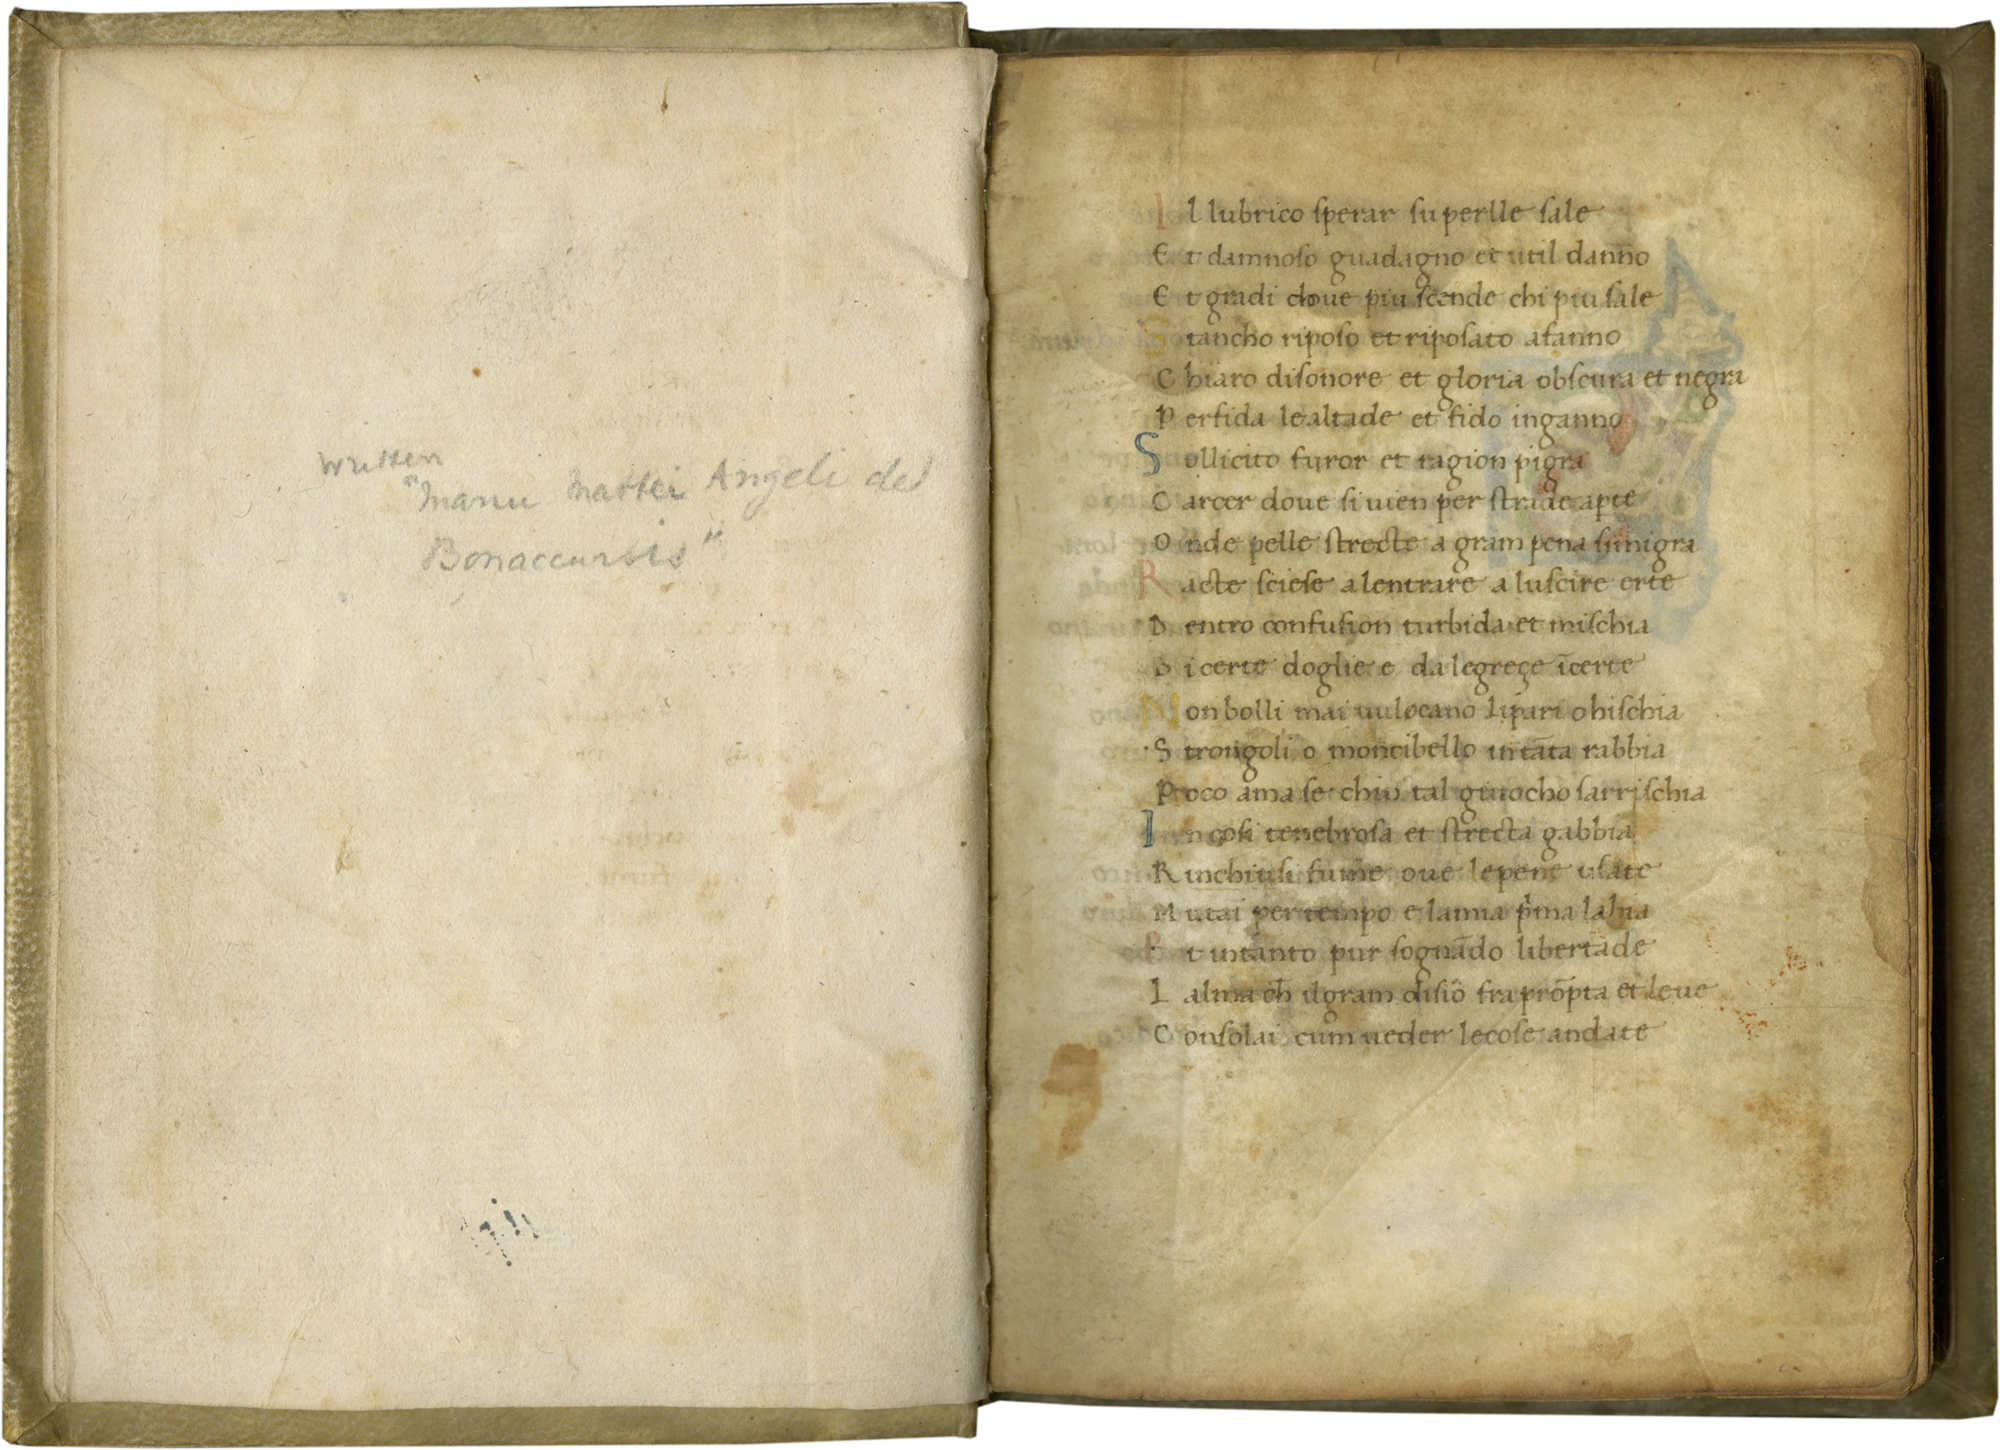 written
"manu mattei Angeli de
Bonaccursis"
Il lubrico sperar su perlle sale
Et damnoso guadagno et util danno
Et gradi doue piu scende chi piu sale
Stancho riposo et riposato afanno
Chiaro disonore et gloria obscura et negra
Perfida lealtade et fido inganno
Sollicito furor et ragion pigra
Carcer doue si uien per strade apte
Onde pelle strecte a gram pena simigra
Racte sciese alentrare a luscire erte
Dentro confusion turbida et mischia
Di certe doglie e dalegreçe īcerte
Non bolli mai uulocano lipari o hischia
Strongoli o moncibello in tāta rabbia
Poco ama se chi in tal giuocho sarrischia
In cosi tenebrosa et strecta gabbia
Rinchiusi fume oue lepene usate
Mutai per tempo e lamia pima labia
Et intanto pur sognādo libertade
Lalma ch ilgram disio fra prōpta et leue
Consolai cum ueder lecose andate